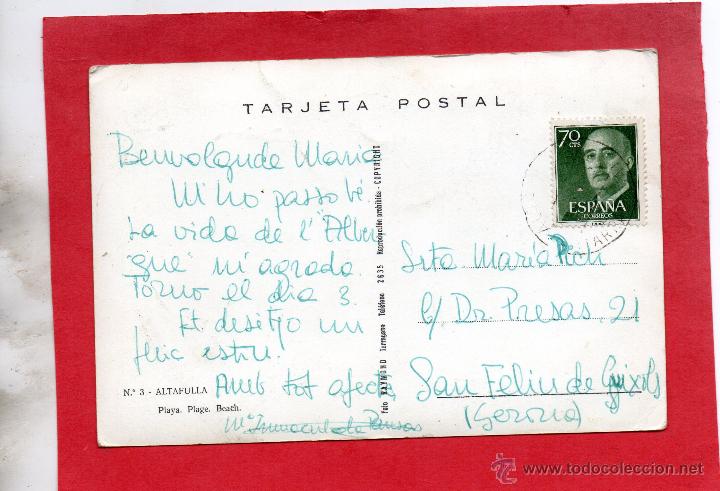 TARJETA POSTAL
70
CTS
ESPAÑA
CORREOS
Benvolguda Maria
M'ho passo bé
La vida de l'"Alber
gue" m'agrada.
Torno el dia 3.
Et desitjo un
feliç estiu.
Amb tot afecte
Mª Inmaculada
Foto RAYMOND Tarragona Teléfono 2635 Reproducción prohibida - COPYRIGHT
Srta María Pich
C/ Dr. Presas. 21
San Feliu de Guixols
(Gerona)
N.º 3 - ALTAFULLA
Playa. Plage. Beach.
© www.todocoleccion.net